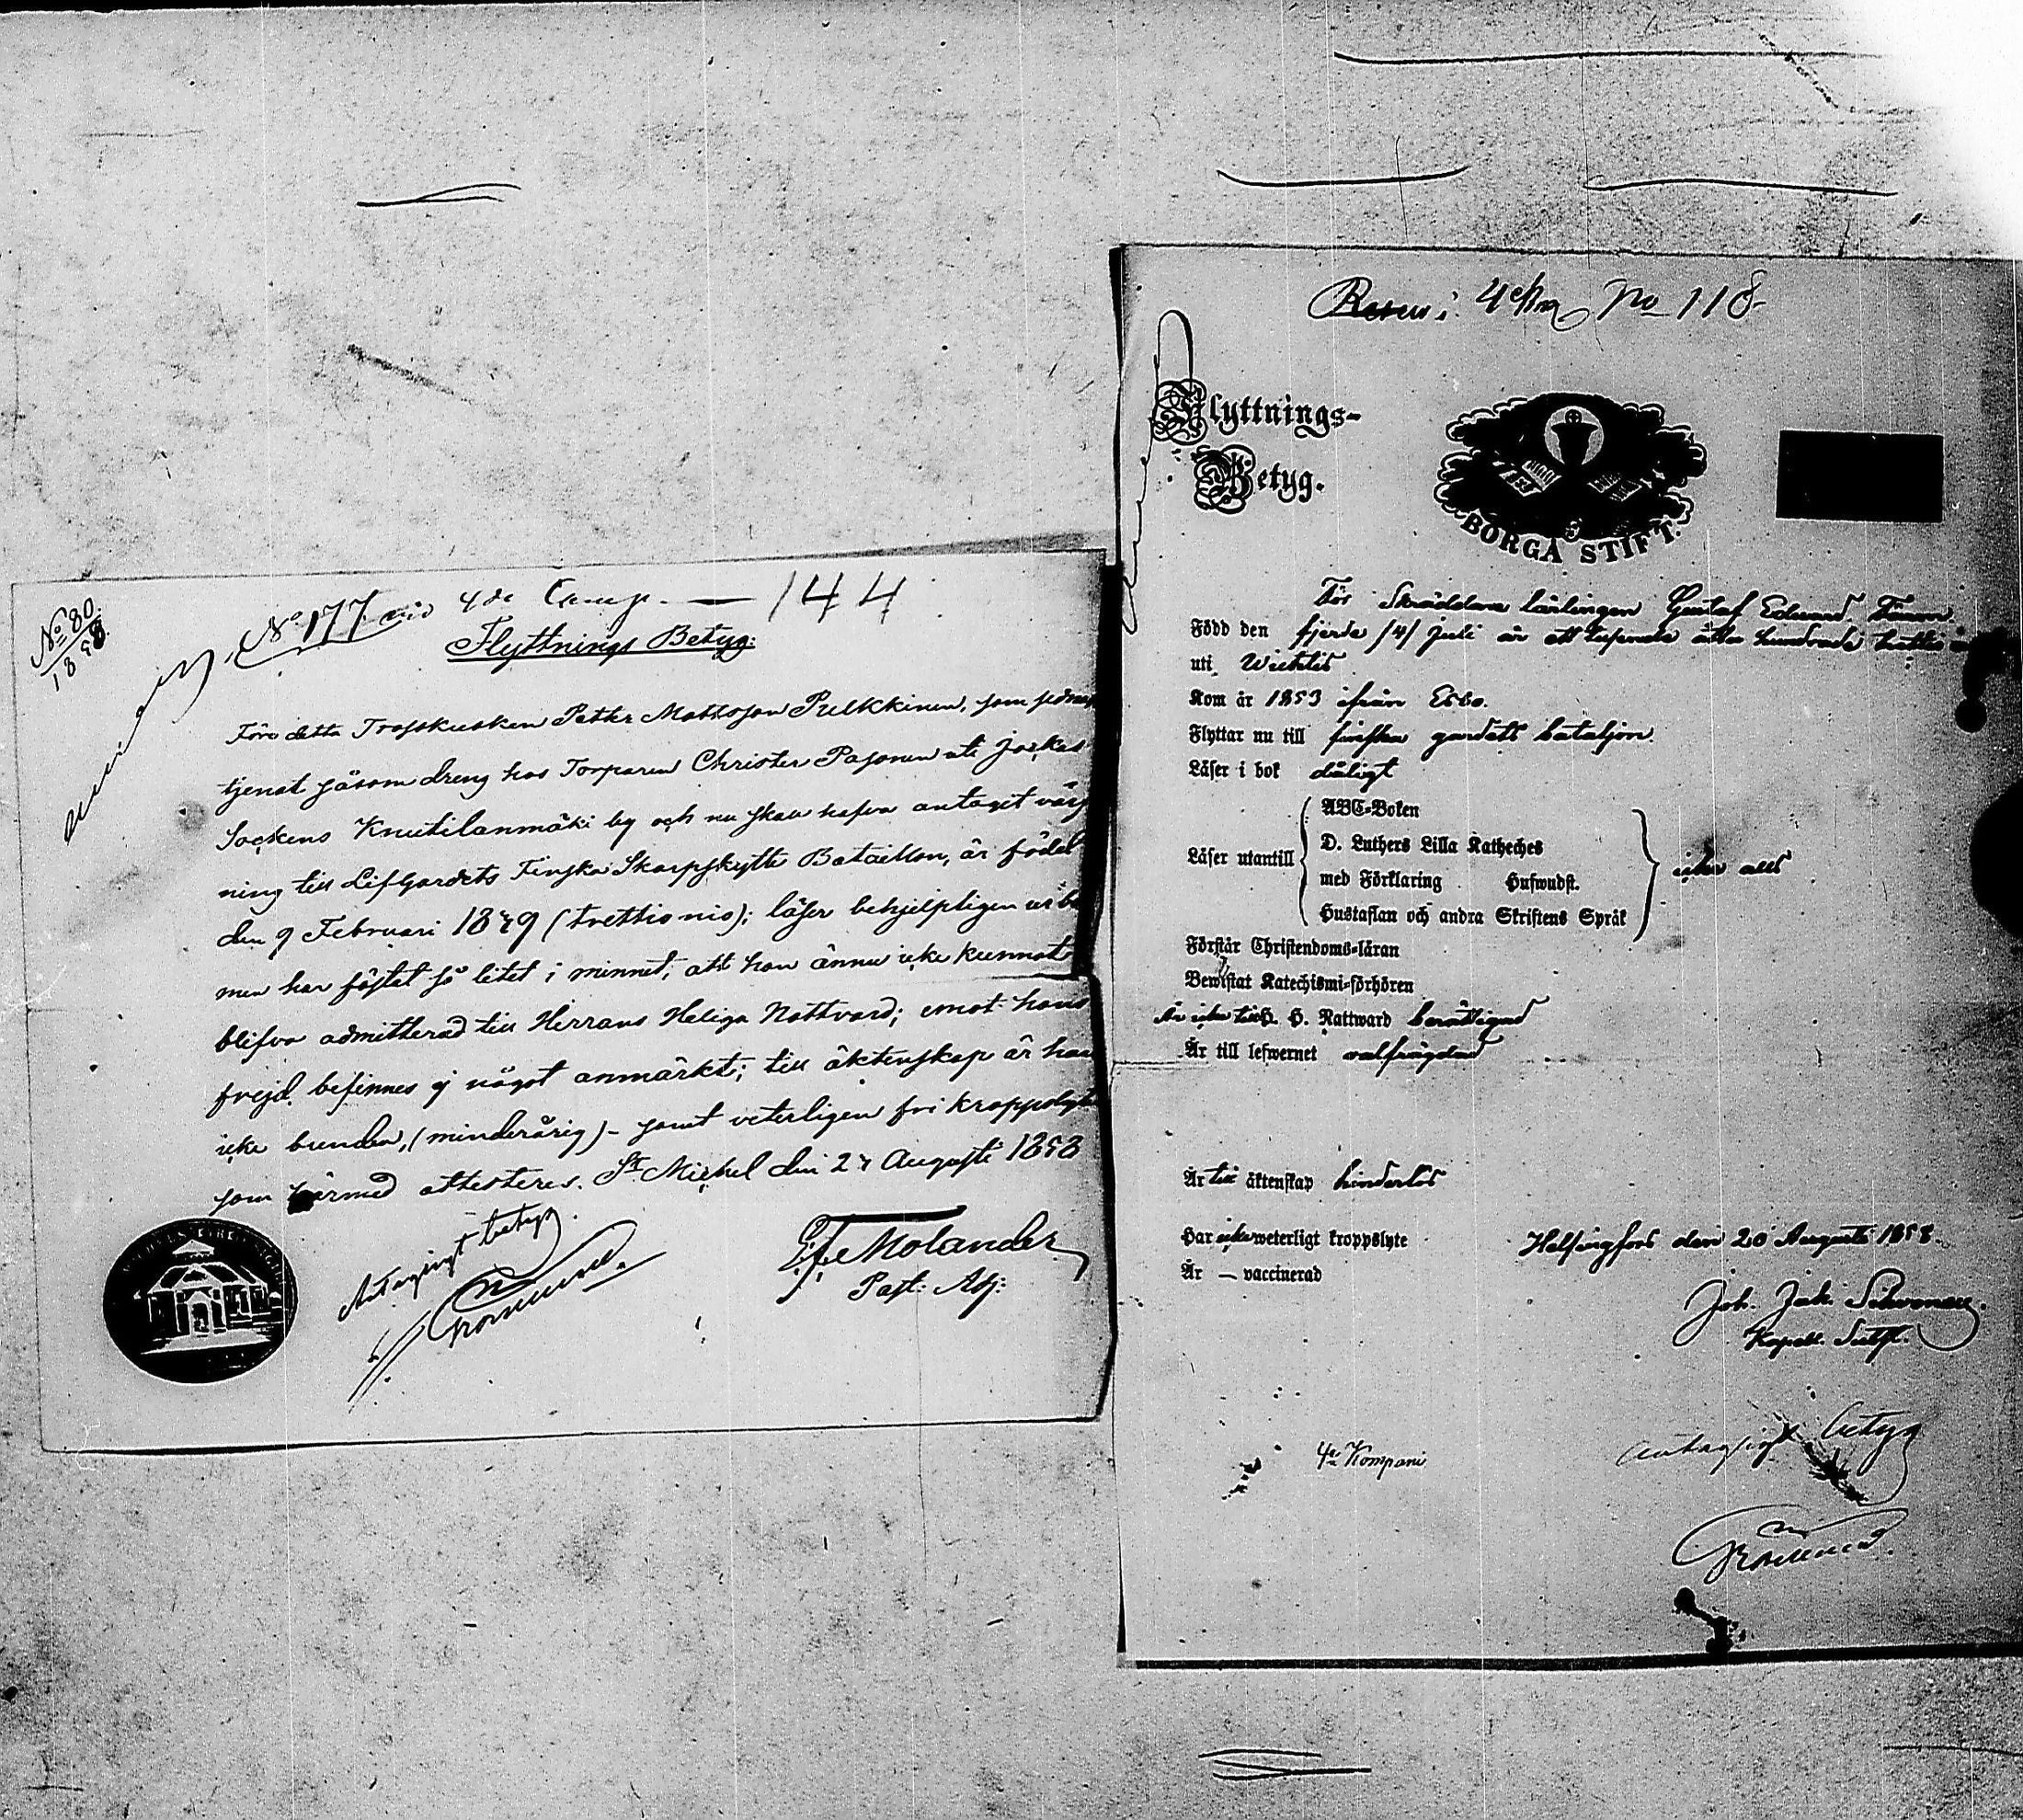 No 80
1858
No 177 vid 4de Comp. — 144
Flyttnings Betyg:
Före detta Trosskusken Petter Mattsson Pulkkinen, som sednast
tjenat såsom dreng hos Torparen Christer Pasonen uti Jorkas
Sockens Knutilanmäki by och nu skall hafva antagit värf
ning till Lifgardets Finska Skarpskytte Bataillon, är född
den 9 Februari 1839 (trettio nio); läser behjelpligen i
men har fästat så litet i minnet, att han ännu icke kunnat
blifva admitterad till Herrans Heliga Nattvard; emot hans
frejd befinnes ej något anmärkt; till äktenskap är han
icke bunden, (minderårig) – samt veterligen fri kroppslyte
som härmed attesteres. St Michel den 27 Augusti 1858
Molander
Past. Adj:
Antagigt betyg.
4 No 118
Flyttnings-
Betyg.
BORGÅ STIFT.
För Skräddare lärlingen Gustaf Eduard
Född den fjerde /4/ Juli år ett tusende åtta hundrade
uti Wichtis
Kom år 1853 ifrån Esbo.
Flyttar nu till finska gardets bataljon.
Läser i bok dåligt
Läser utantill
ABC-Boken
D. Luthers Lilla Katheches
med Förklaring Hufwudst.
Hustaflan och andra Skriftens Språk
icke alls
Förstår Christendoms-läran
Bewistat Katechismi-förhören
Är icke till H. H. Nattward berättigad
Är till lefwernet välfrägdad
Är till äktenskap hinderlös
Har icke weterligt kroppslyte
Helsingfors den 20 Augusti 1858.
Är — vaccinerad
Joh. Jak.
Kapell. Subst.
4de Kompani
antagigt betyg